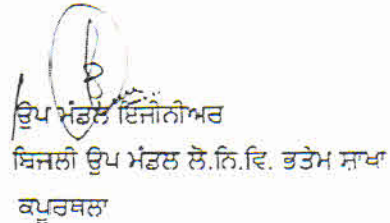 ਉਪ ਮੰਡਲ ਇੰਜੀਨੀਅਰ
ਬਿਜਲੀ ਉਪ ਮੰਡਲ ਲੋ.ਨਿ.ਵਿ. ਭਤੇਮ ਸ਼ਾਖਾ
ਕਪੂਰਥਲਾ